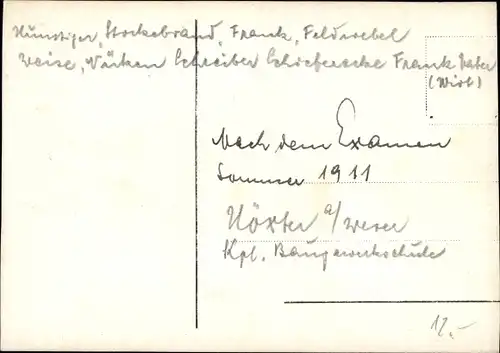 Stockebrand, Frank, Feldwebel
Weise, Schreiber Frank Vater
(Wirt)
Nach dem Examen
Sommer 1911
Höxter a/Weser
Kgl. Baugewerkschule
12.-